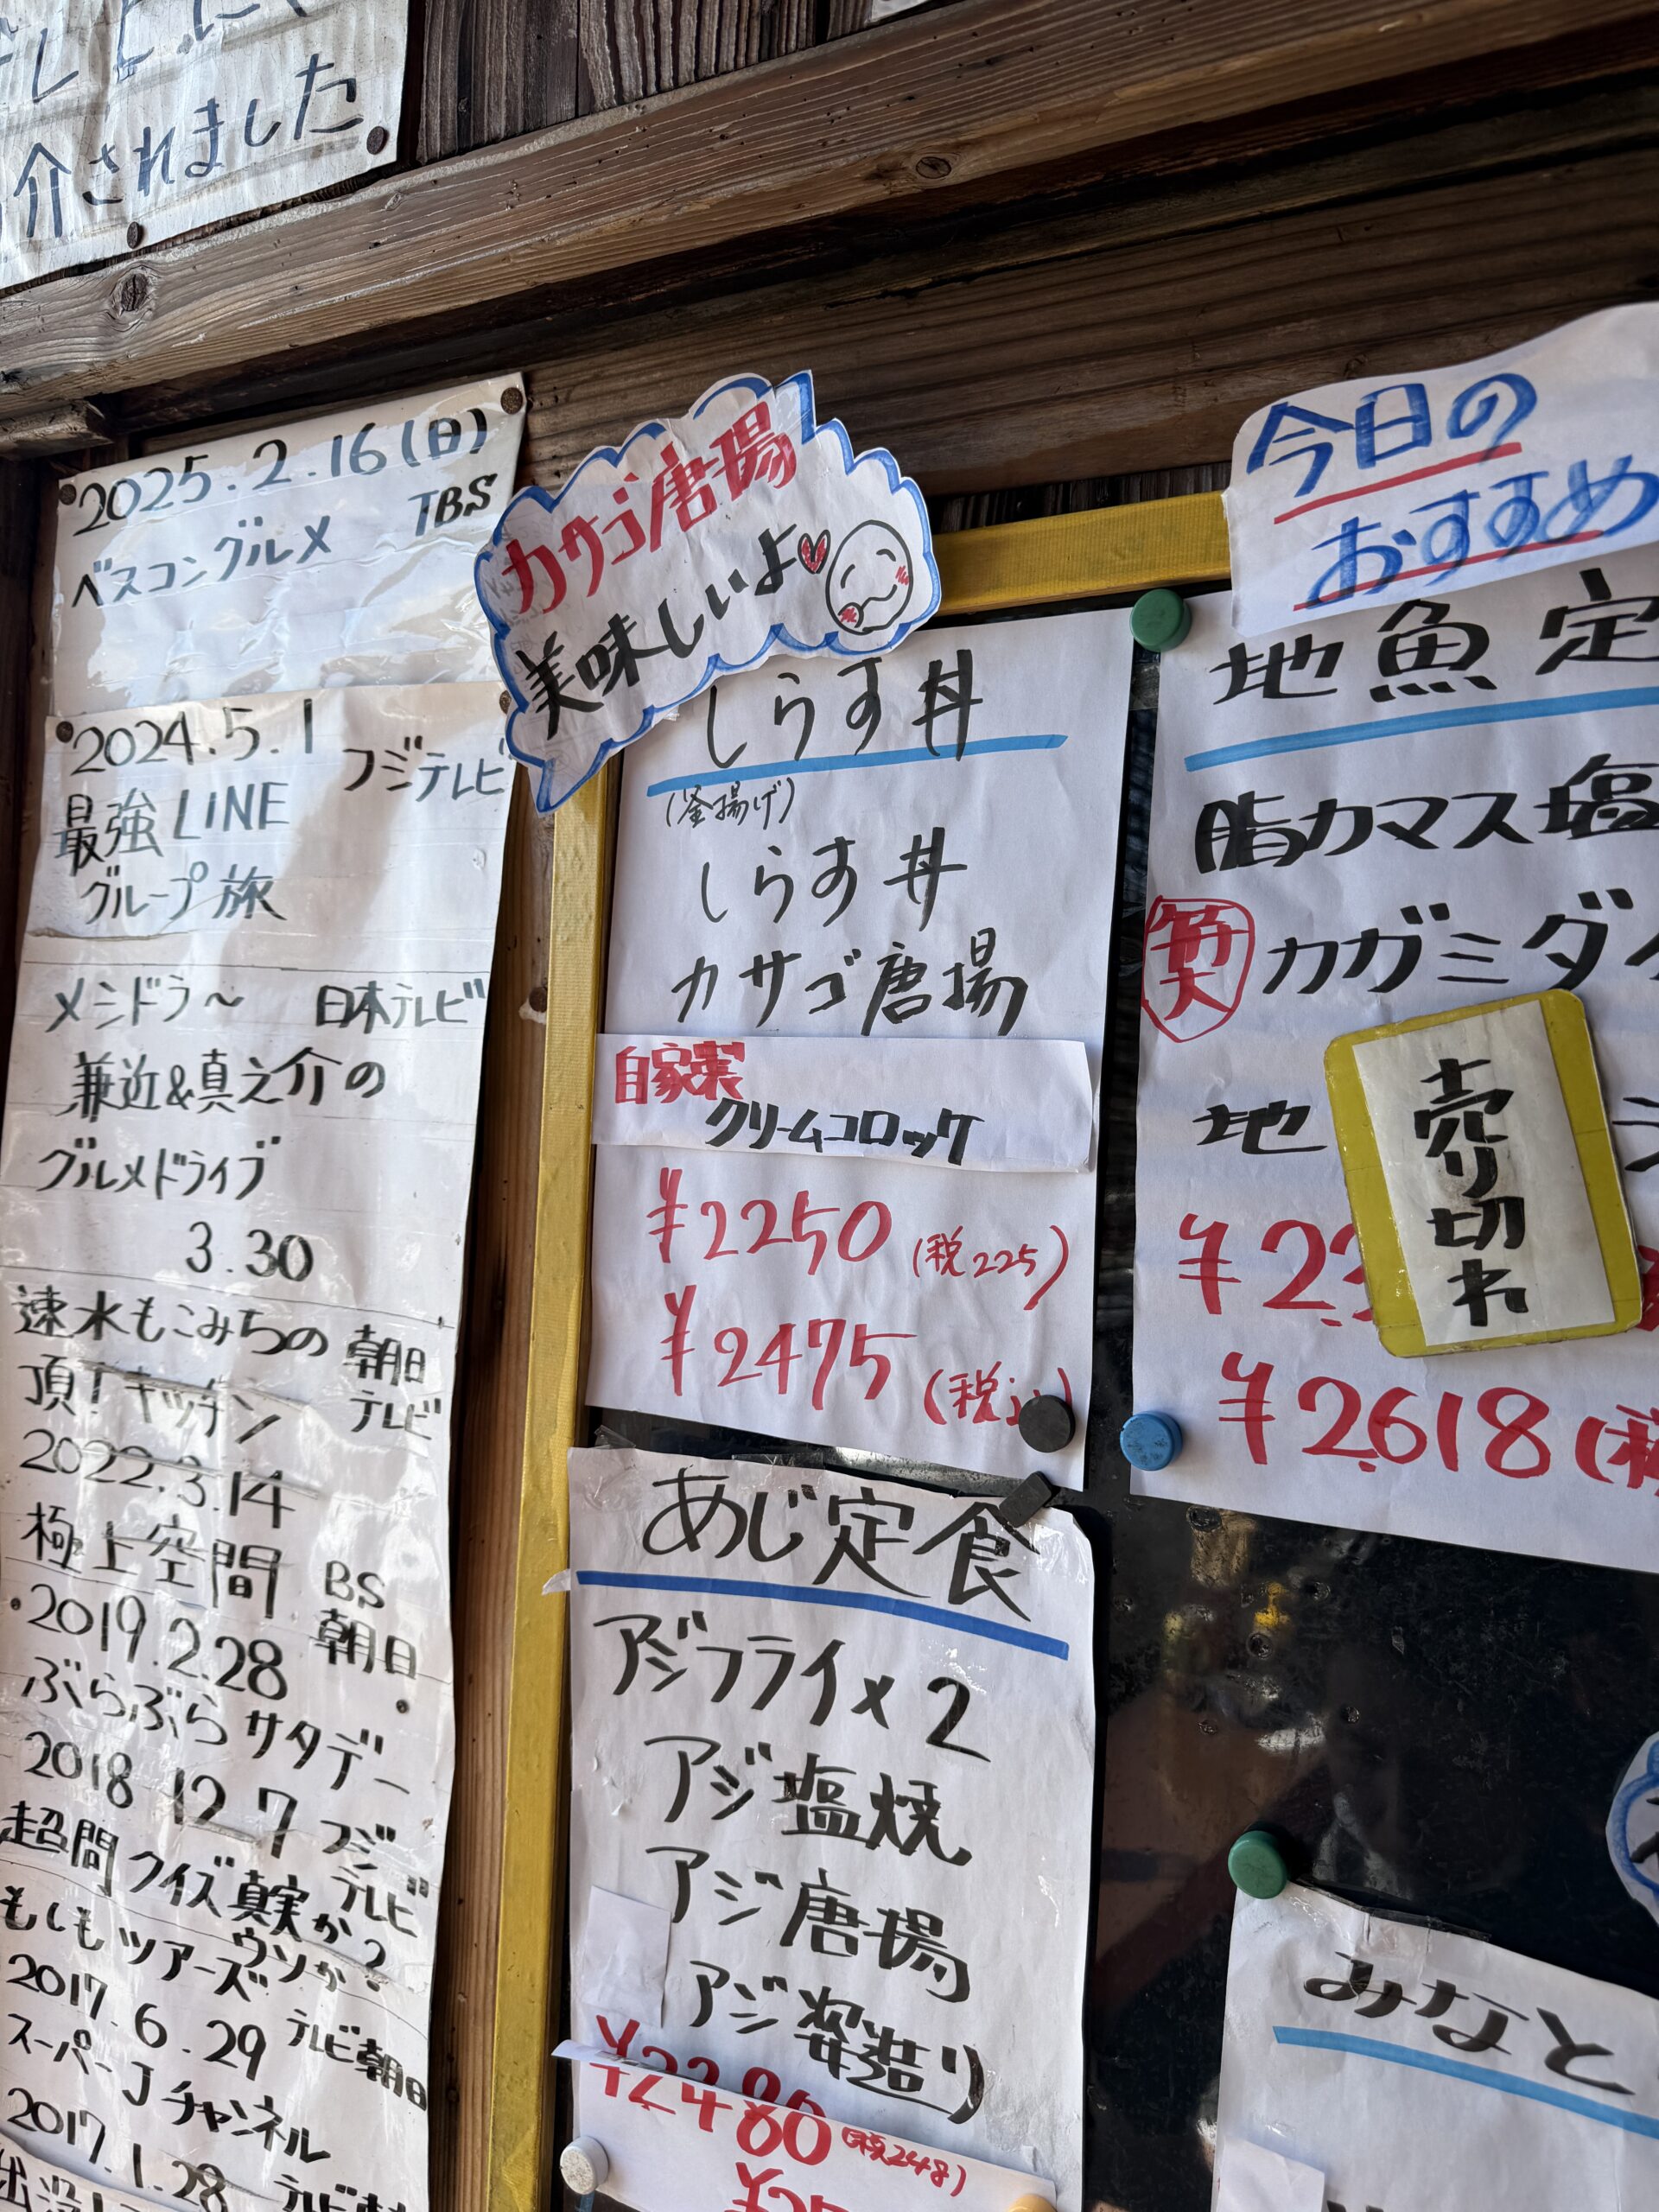 介されました
2025.2.16(日)
TBS
ベスコングルメ
2024.5.1
フジテレビ
最強LINE
グループ旅
メシドラ〜 日本テレビ
兼近&真之介の
グルメドライブ
3.30
速水もこみちの 朝日
頂!キッチン テレビ
2022.3.14
極上空間 BS
朝日
2019.2.28
ぶらぶらサタデー
2018 12.7 フジ
テレビ
超問クイズ真実か?
ウソか?
もしもツアーズ
2017.6.29 テレビ朝日
スーパーJチャンネル
2017.1.28
カサゴ唐揚
美味しいよ♥
しらす丼
(釜揚げ)
しらす丼
カサゴ唐揚
自家製
クリームコロッケ
¥2250 (税225)
¥2475 (税込)
あじ定食
アジフライ×2
アジ塩焼
アジ唐揚
アジ姿造り
¥2480 (税248)
今日の
おすすめ
地魚定
脂カマス塩
カガミダイ
地
売り切れ
¥23
¥2618
みなと